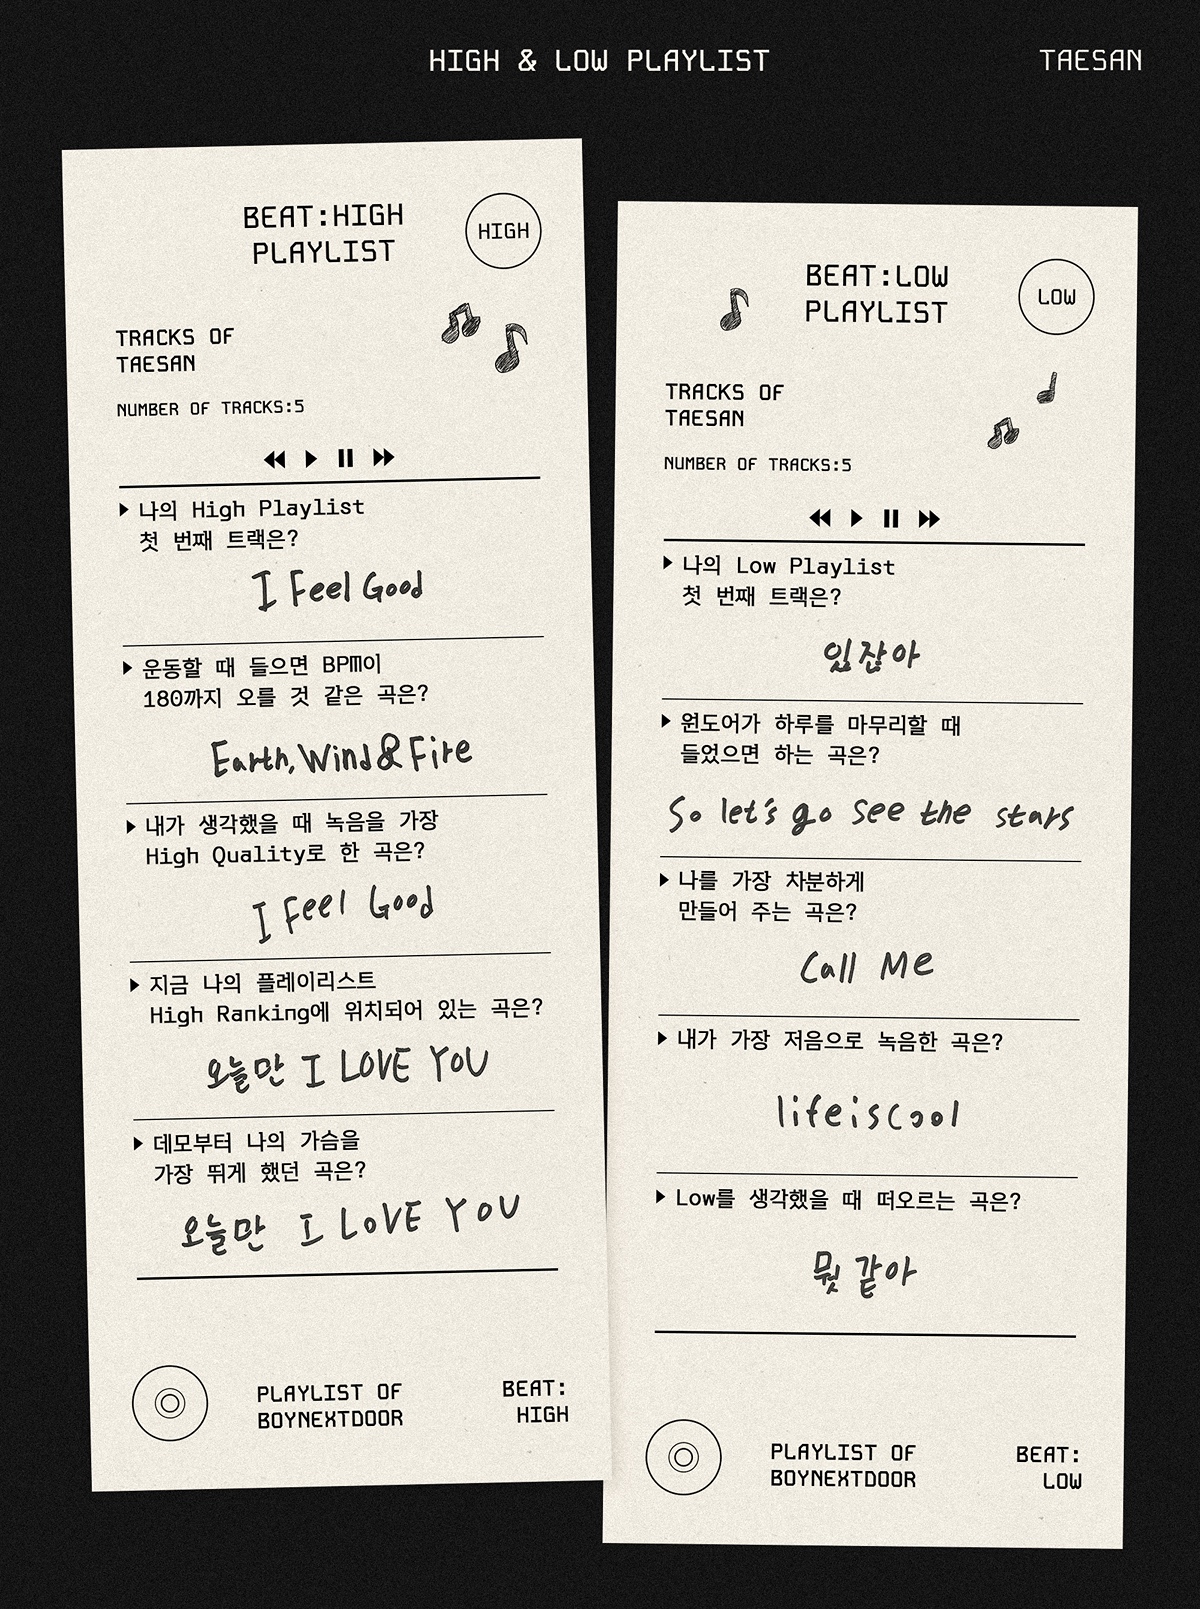 HIGH & LOW PLAYLIST
TAESAN
BEAT:HIGH
PLAYLIST
HIGH
TRACKS OF
TAESAN
NUMBER OF TRACKS:5
나의 High Playlist
첫 번째 트랙은?
I Feel Good
운동할 때 들으면 BPM이
180까지 오를 것 같은 곡은?
Earth, Wind & Fire
내가 생각했을 때 녹음을 가장
High Quality로 한 곡은?
I Feel Good
지금 나의 플레이리스트
High Ranking에 위치되어 있는 곡은?
오늘만 I LOVE YOU
데모부터 나의 가슴을
가장 뛰게 했던 곡은?
오늘만 I LOVE YOU
PLAYLIST OF
BOYNEXTDOOR
BEAT:
HIGH
BEAT:LOW
PLAYLIST
LOW
TRACKS OF
TAESAN
NUMBER OF TRACKS:5
나의 Low Playlist
첫 번째 트랙은?
있잖아
원도어가 하루를 마무리할 때
들었으면 하는 곡은?
So let's go see the stars
나를 가장 차분하게
만들어 주는 곡은?
Call Me
내가 가장 저음으로 녹음한 곡은?
lifeiscool
Low를 생각했을 때 떠오르는 곡은?
뭣 같아
PLAYLIST OF
BOYNEXTDOOR
BEAT:
LOW